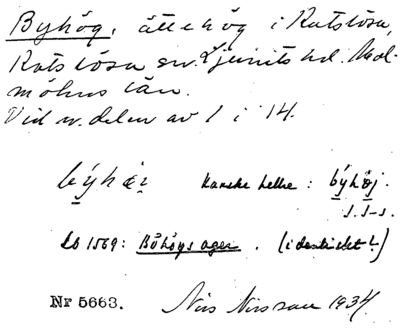 Byhög, ättehög i Katslösa,
Katslösa sn. Ljunits hd. Mal-
möhus län.
Vid n. delen av 1 i 14.
býhøi̯ kanske hellre: býhøj.
J. S-s.
LB 1569: Böhögs ager. (identiskt?)
Nr 5663. Nils Nilsson 1934